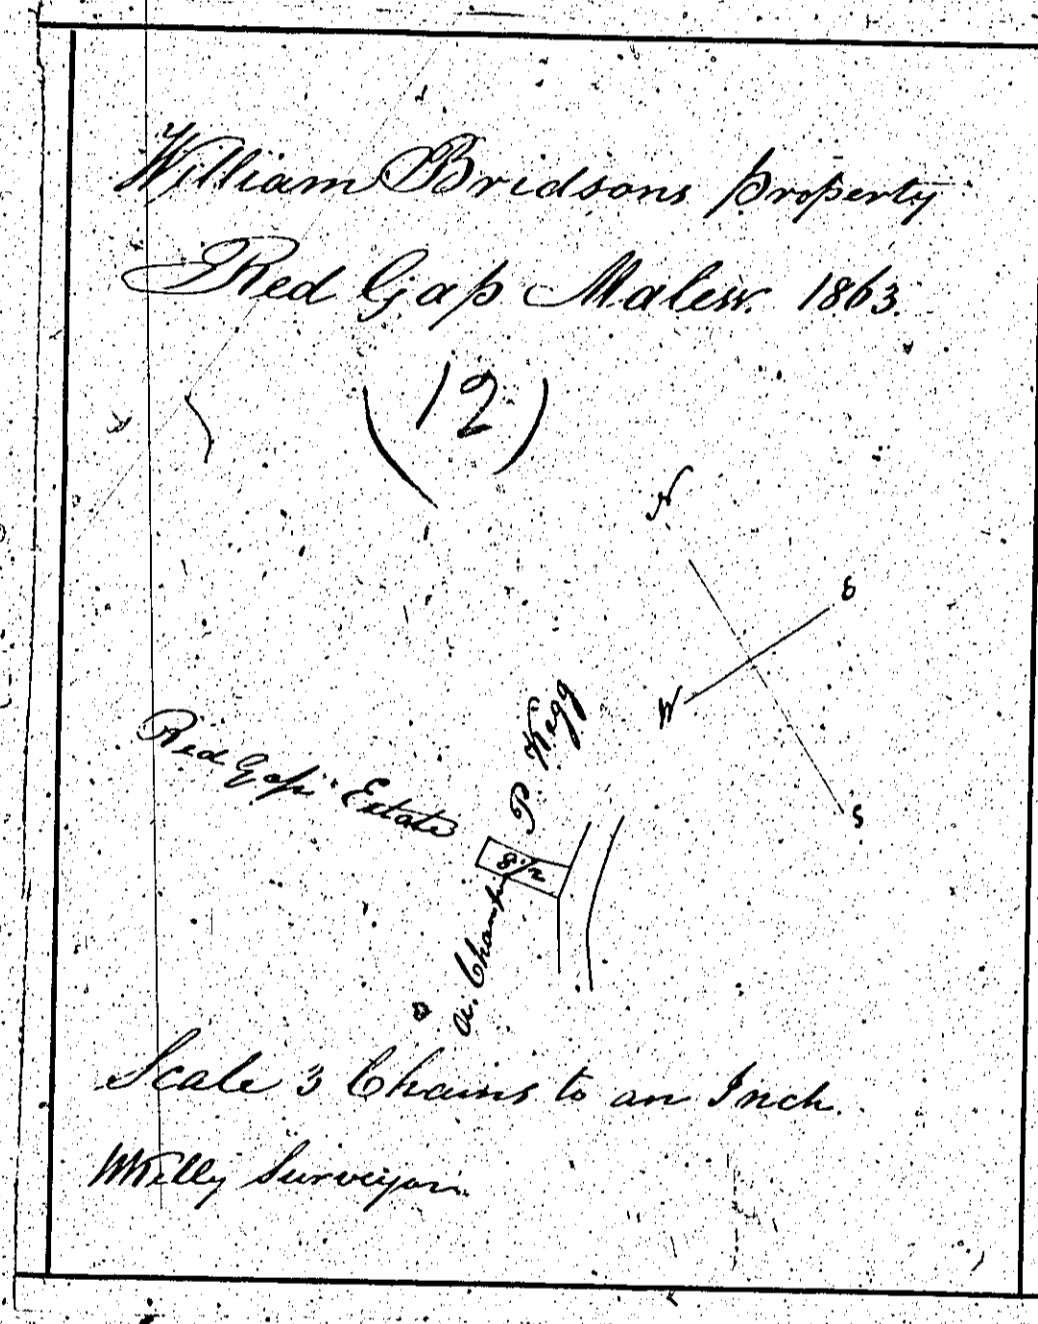 William Bridsons property
Red Gap Malew. 1863.
(12)
N
E
W
S
P. Kegg
Red Gap Estate
8 1/2
Scale 3 Chains to an Inch.
WKelly Surveyor.